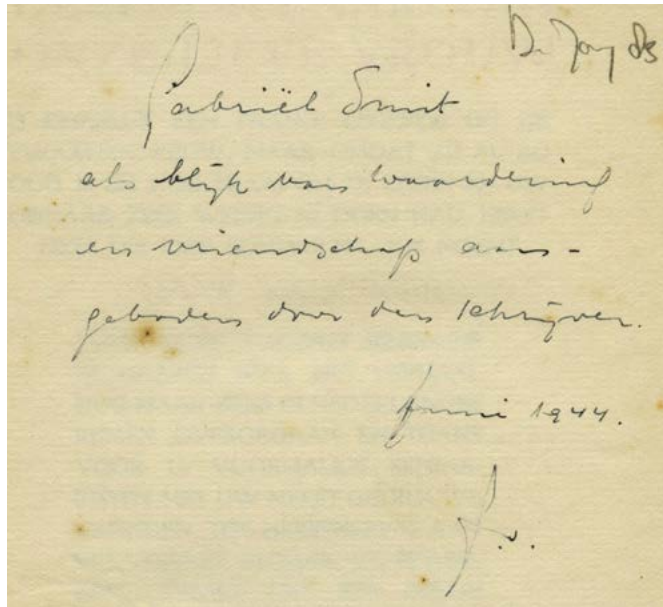 De Jong 83
Gabriël Smit
als blijk van waardering
en vriendschap aan-
geboden door den schrijver.
Juni 1944.